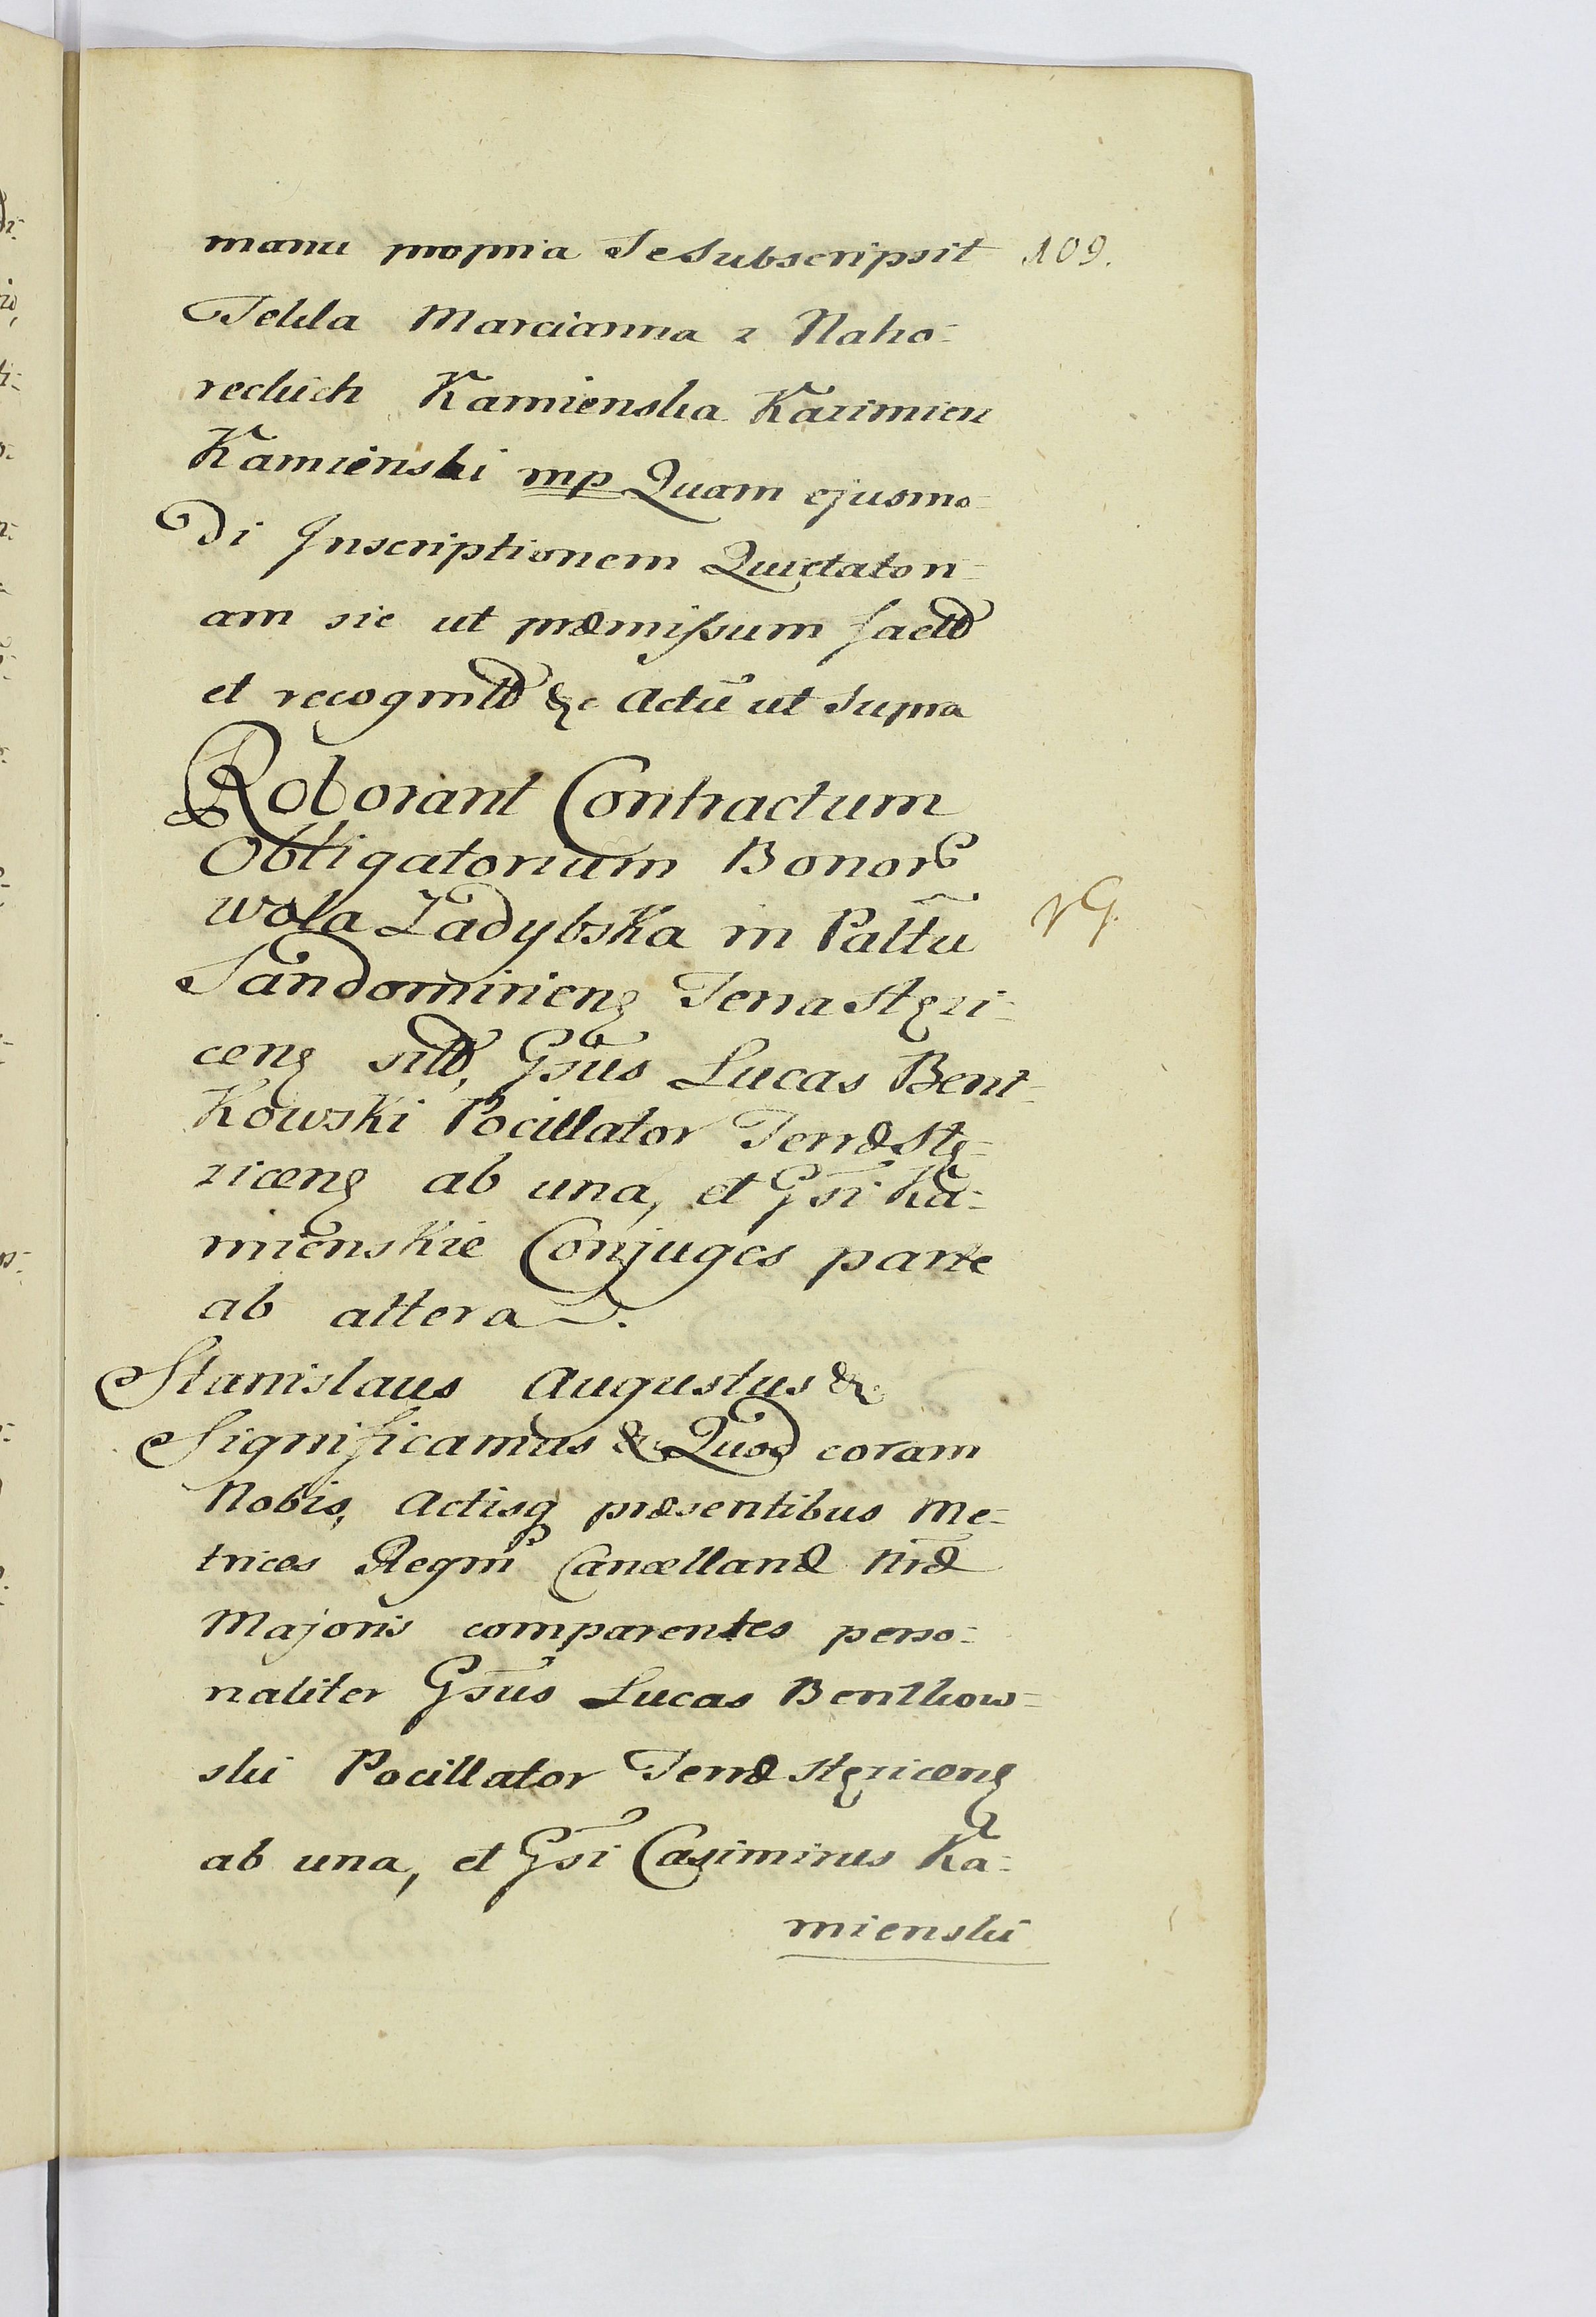 manu propria Se Subscripsit 109.
Tekla Marcianna z Naho=
reckich Kamienska Kazimierz
Kamienski mp Quam ejusmo=
di Inscriptionem Quietatori=
am sic ut præmissum fact
et recognit &c Actū ut Supra
Roborant Contractum
Obligatorium Bonor
Wola Zadybska in Palttū
Sandomirien Terra Stęzi=
cen sit, Gsūs Lucas Bent=
Kowski Pocillator Terræ Stę=
zicen ab una, et Gsi Ka=
mienskie Conjuges parte
ab altera.
Stanislaus Augustus &
Significamus & Quod coram
Nobis, Actisq præsentibus Me=
trices Regni Cancellariæ Nræ
Majoris comparentes perso=
naliter Gsūs Lucas Bentkow=
ski Pocillator Terræ Stęzicen
ab una, et Gsi Casimirus Ka=
mienski